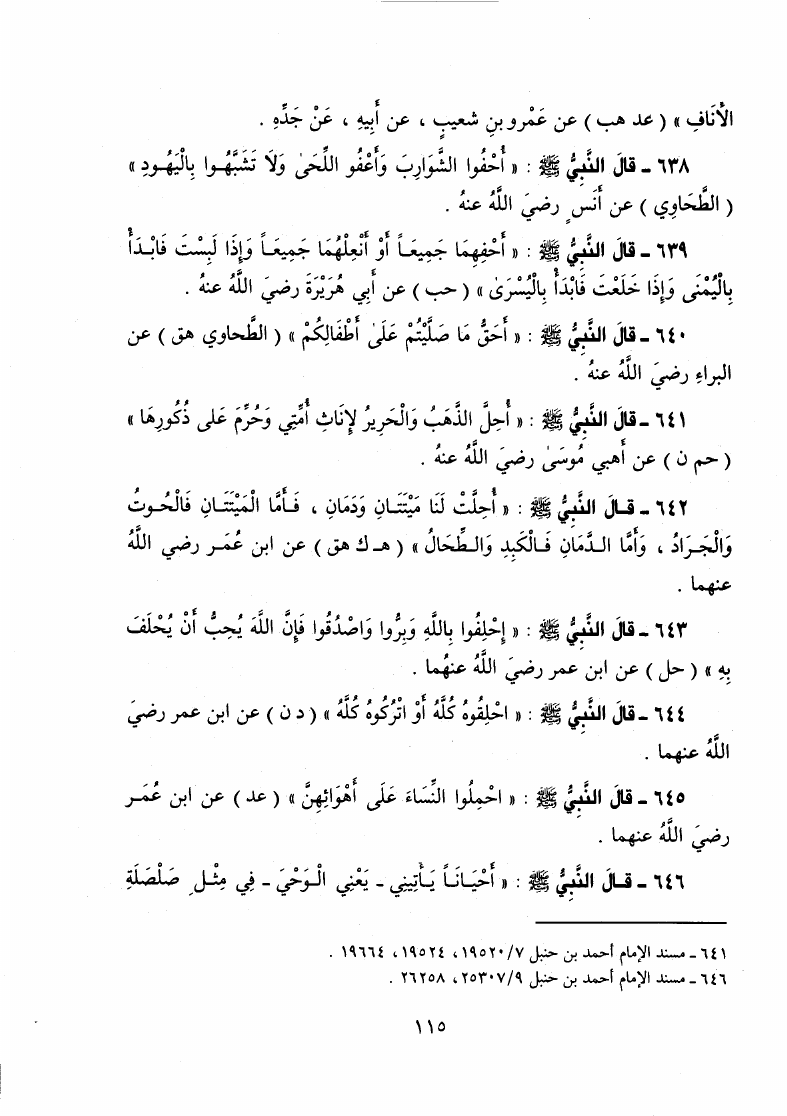 الْأَنَافِ » ( عد هب ) عن عَمْرو بنِ شعيبٍ ، عن أَبِيهِ ، عَنْ جَدِّهِ .
٦٣٨ ـ قالَ النَّبِيُّ ﷺ : « أَحْفُوا الشَّوَارِبَ وَأَعْفُو اللِّحَىٰ وَلَا تَشَبَّهُوا بِالْيَهُودِ »
( الطَّحَاوِي ) عن أَنَسٍ رضيَ اللَّهُ عنهُ .
٦٣٩ ـ قالَ النَّبِيُّ ﷺ : « أَحْفِهِمَا جَمِيعَاً أَوْ أَنْعِلْهُمَا جَمِيعَاً وَإِذَا لَبِسْتَ فَابْدَأْ
بِالْيُمْنَى وَإِذَا خَلَعْتَ فَابْدَأْ بِالْيُسْرَىٰ » ( حب ) عن أَبِي هُرَيْرَةَ رضيَ اللَّهُ عنهُ .
٦٤٠ ـ قالَ النَّبِيُّ ﷺ : « أَحَقُّ مَا صَلَّيْتُمْ عَلَىٰ أَطْفَالِكُمْ » ( الطَّحاوي هق ) عن
البراءِ رضيَ اللَّهُ عنهُ .
٦٤١ ـ قالَ النَّبِيُّ ﷺ : « أُحِلَّ الذَّهَبُ وَالْحَرِيرُ لإِنَاثِ أُمَّتِي وَحُرِّمَ عَلى ذُكُورِهَا »
( حم ن ) عن أَهبي مُوسَىٰ رضيَ اللَّهُ عنهُ .
٦٤٢ ـ قالَ النَّبِيُّ ﷺ : « أُحِلَّتْ لَنَا مَيْتَتَانِ وَدَمَانِ ، فَأَمَّا الْمَيْتَتَانِ فَالْحُوتُ
وَالْجَرَادُ ، وَأَمَّا الدَّمَانِ فَالْكَبِدِ وَالطِّحَالُ » ( هـ ك هق ) عن ابن عُمَر رضي اللَّهُ
عنهما .
٦٤٣ ـ قالَ النَّبِيُّ ﷺ : « إِحْلِفُوا بِاللَّهِ وَبِرُّوا وَاصْدُقُوا فَإِنَّ اللَّهَ يُحِبُّ أَنْ يُحْلَفَ
بِهِ » ( حل ) عن ابن عمر رضيَ اللَّهُ عنهُما .
٦٤٤ ـ قالَ النَّبِيُّ ﷺ : « احْلِقُوهُ كُلَّهُ أَوْ اتْرُكُوهُ كُلَّهُ » ( د ن ) عن ابن عمر رضيَ
اللَّهُ عنهما .
٦٤٥ ـ قالَ النَّبِيُّ ﷺ : « احْمِلُوا النِّسَاءَ عَلَى أَهْوَائِهِنَّ » ( عد ) عن ابن عُمَر
رضيَ اللَّهُ عنهما .
٦٤٦ ـ قالَ النَّبِيُّ ﷺ : « أَحْيَانَاً يَأْتِينِي ـ يَعْنِي الْوَحْيَ ـ فِي مِثْلِ صَلْصَلَةِ
٦٤١ ـ مسند الإمام أحمد بن حنبل ١٩٥٢٠/٧، ١٩٥٢٤، ١٩٦٦٤ .
٦٤٦ ـ مسند الإمام أحمد بن حنبل ٢٥٣٠٧/٩، ٢٦٢٥٨ .
١١٥